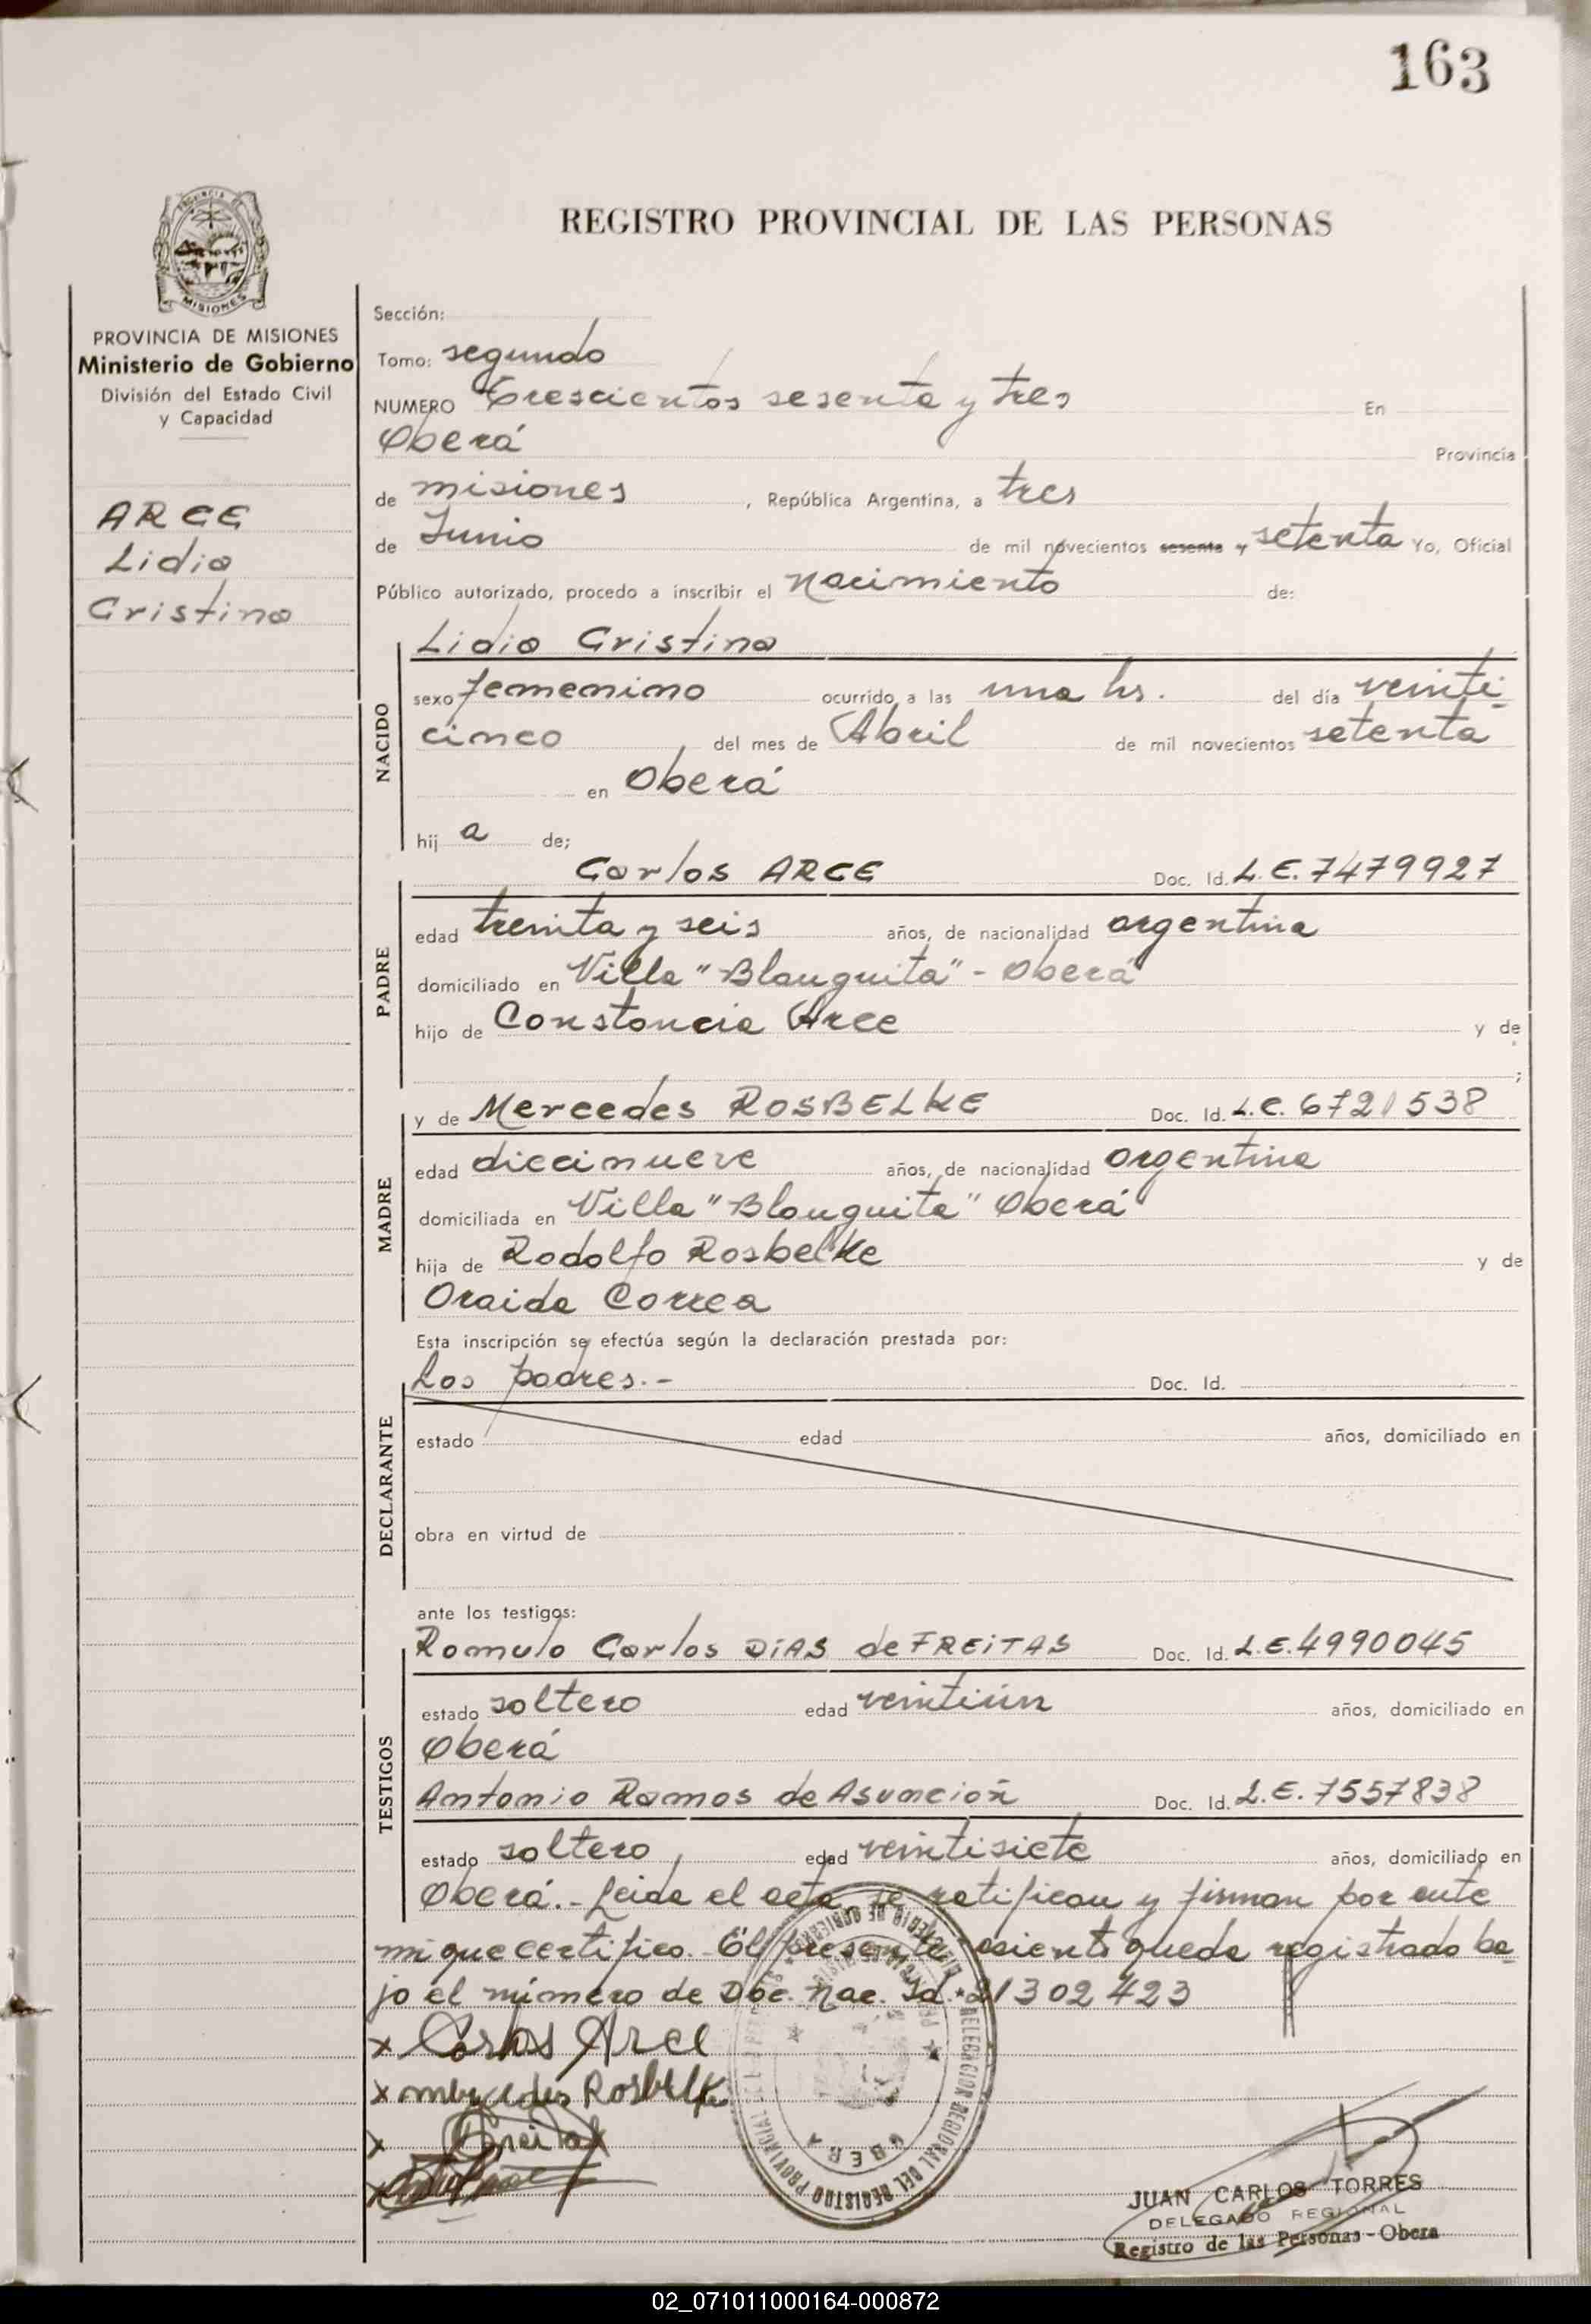 163
REGISTRO PROVINCIAL DE LAS PERSONAS
PROVINCIA DE MISIONES
Ministerio de Gobierno
División del Estado Civil
y Capacidad
ARCE
Lidia
Cristina
Sección:
Tomo: segundo
NUMERO Trescientos sesenta y tres En
Oberá Provincia
de misiones, República Argentina, a tres
de Junio de mil novecientos sesenta y setenta Yo, Oficial
Público autorizado, procedo a inscribir el nacimiento de:
NACIDO
Lidia Cristina
sexo femenino ocurrido a las una hs. del día veinti-
cinco, del mes de Abril de mil novecientos setenta
en Oberá
hij a de;
PADRE
Carlos ARCE Doc. Id. L.E. 7479927
edad treinta y seis años, de nacionalidad argentina
domiciliado en Villa "Blanquita" - Oberá
hijo de Constancia Arce y de
;
MADRE
y de Mercedes ROSBELKE Doc. Id. L.C. 6721538
edad diecinueve años, de nacionalidad argentina
domiciliada en Villa "Blanquita" Oberá
hija de Rodolfo Rosbelke y de
Oraida Correa
Esta inscripción se efectúa según la declaración prestada por:
DECLARANTE
Los padres.- Doc. Id.
estado edad años, domiciliado en
obra en virtud de
ante los testigos:
TESTIGOS
Romulo Carlos DiAS de FREiTAS Doc. Id. L.E. 4990045
estado soltero edad veintiún años, domiciliado en
Oberá
Antonio Ramos de Asunción Doc. Id. L.E. 7557838
estado soltero, edad veintisiete años, domiciliado en
Oberá.- Leida el acta, se ratifican y firman por ante
mi que certifico. El presente asiento queda registrado ba-
jo el número de Doc. Nac. Id. 21302423
x Carlos Arce
x mercedes Rosbelke
x Freitas
x
DELEGACION REGIONAL DEL REGISTRO PROVINCIAL DE
OBERA
JUAN CARLOS TORRES
DELEGADO REGIONAL
Registro de las Personas - Obera
02_071011000164-000872